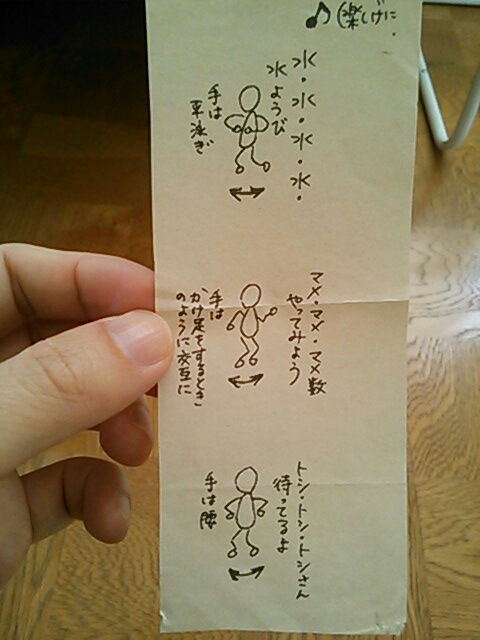 ♪(楽しげに
水・水・水・水・
水ようび
手は
平泳ぎ
マメ・マメ・マメ数
やってみよう
手は
かけ足をするとき
のように交互に
トシ・トシ・トシさん
待ってるよ
手は腰